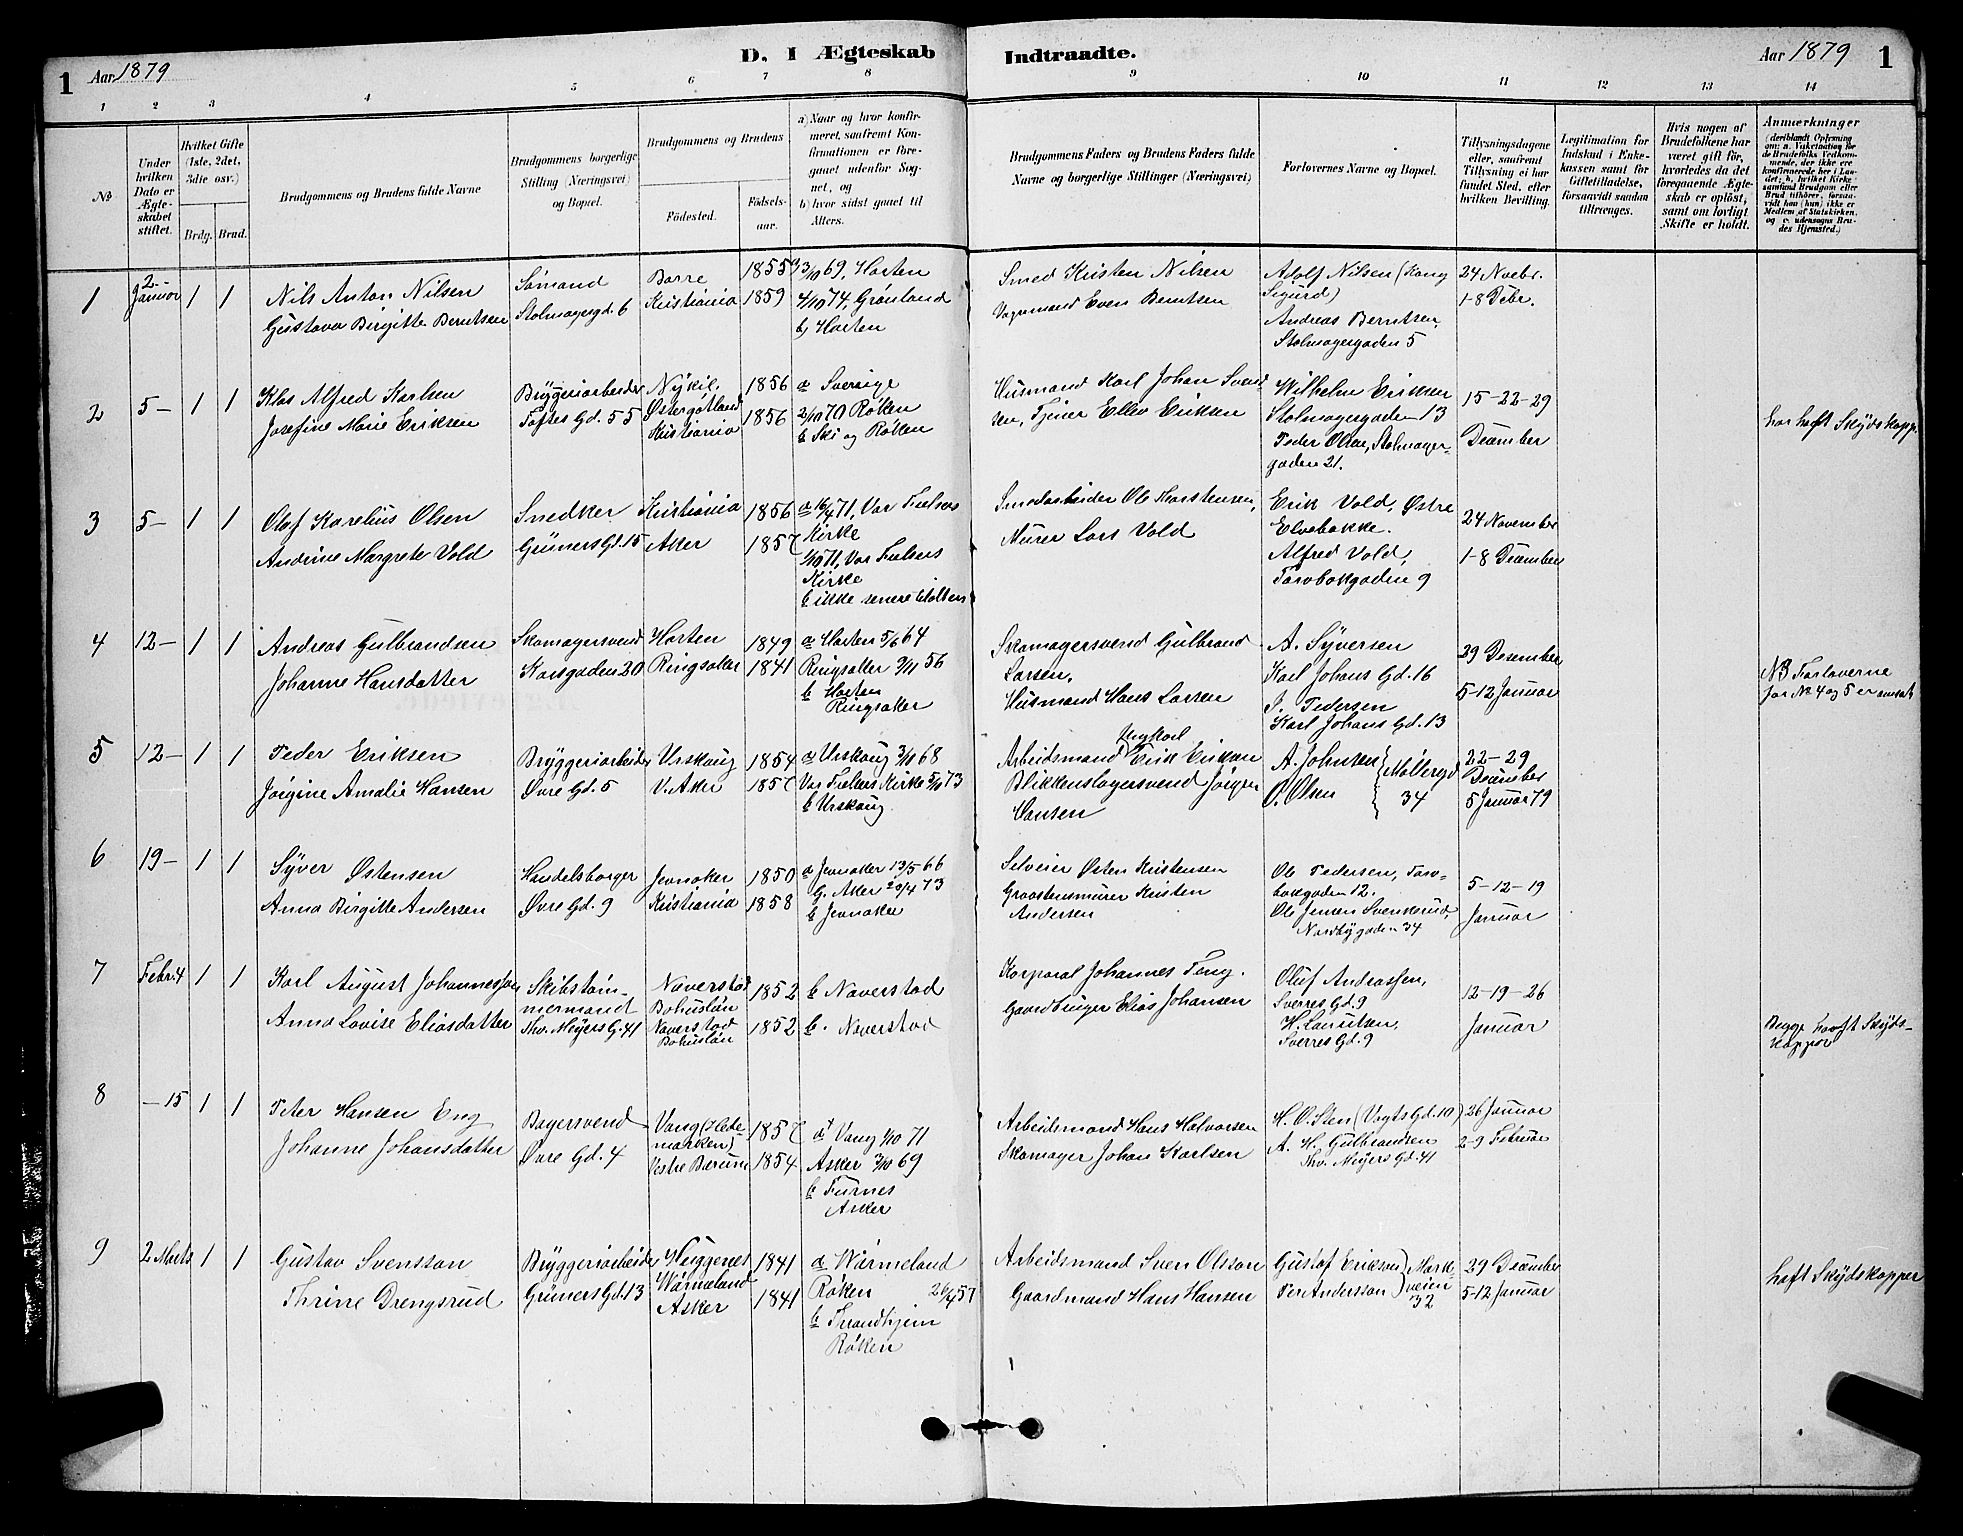 1 Aar 1879 D. I Ægteskab Indtraadte. Aar 1879 1
1 2 3 4 5 6 7 8 9 10 11 12 13 14
№
Under hvilken Dato er Ægteskabet stiftet.
Hvilket Gifte (1ste, 2det, 3die osv.)
Brdg. Brud.
Brudgommens og Brudens fulde Navne
Brudgommens borgerlige Stilling (Næringsvei) og Bopæl.
Brudgommens og Brudens
Fødested. Fødsels-aar.
a) Naar og hvor konfir-
meret, saafremt Kon-
firmationen er fore-
gaaet udenfor Sog-
net, og
b) hvor sidst gaaet til
Alters.
Brudgommens Faders og Brudens Faders fulde
Navne og borgerlige Stillinger (Næringsvei)
Forlovernes Navne og Bopæl.
Tillysningsdagene
eller, saafremt
Tillysning ei har
fundet Sted, efter
hvilken Bevilling.
Legitimation for
Indskud i Enke-
kassen samt for
Giftetilladelse,
forsaavidt saadan
tiltrænges.
Hvis nogen af
Brudefolkene har
været gift før,
hvorledes da det
foregaaende Ægte-
skab er opløst,
samt om lovligt
Skifte er holdt.
Anmærkninger
(deriblandt Oplysning
om: a. Vakcination for
de Brudefolks Vedkom-
mende, der ikke ere
konfirmerede her i Lan-
det; b. hvilket Kirke-
samfund Brudgom eller
Brud tilhører, forsaa-
vidt han (hun) ikke er
Medlem af Statskirken,
og c. udensogns Bru-
des Hjemsted.)
1 2- Januar 1 1
Nils Anton Nilsen
Gustava Birgitte Berntsen
Sømand
Stolmagergd. 6
Borre 1855
Kristiania 1859
3/10 69. Horten
4/10 74. Grønland
b) Horten
Smed Kristen Nilsen
Vognmand Even Berntsen
Adolf Nilsen (Kong
Sigurd)
Andreas Berntsen,
Stolmagergaden 5
24 Novbr.
1-8 Debr.
2 5- 1 1
Klas Alfred Karlsen
Josefine Marie Eriksen
Bryggeriarbeider
Toftes Gd. 55
Nykil, 1856
Østergøtland
Kristiania 1856
a Sverige
2/10 70 Røken
b Ski og Røken
Husmand Karl Johan Svend-
sen, Tjener Ellev Eriksen
Wilhelm Eriksen
Stolmagergaden 13
Peder Olsen, Stolmager-
gaden 21.
15-22-29
Deember
har haft Skyds kopp.
3 5- 1 1
Olaf Karelius Olsen
Andrine Margrete Vold
Snedker
Grüners Gd. 15
Kristiania 1856
Aker 1857
a 16/4 71, Vor Frelsers
Kirke
1/10 71, Vor Frelsers
Kirke
b ikke senere
Smedarbeider Ole Thorstensen,
Murer Lars Vold
Erik Vold, Østre
Elvebakke.
Alfred Vold,
Torvbakgaden 9
24 November
1-8 Deember
4 12- 1 1
Andreas Gulbrandsen
Johanne Hansdatter
Skomagersvend
Korsgaden 20
Horten 1849
Ringsaker 1841
a Horten 5/6 64
Ringsaker 2/11 56
b Horten
Ringsaker
Skomagersvend Gulbrand
Larsen,
Husmand Hans Larsen
A. Syversen
Karl Johans Gd. 16
J. Pedersen
Karl Johans Gd. 13
29 Desember
5-12 Januar
NB Forloverne
for № 4 og 5 er
5 12- 1 1
Peder Eriksen
Jørgine Amalie Hansen
Bryggeriarbeider
Øvre Gd. 5
Urskoug 1854
V. Aker 1857
a Urskoug 3/10 68
Vor Frelsers Kirke 5/10 73
b Urskoug
Ungkarl
Arbeidsmand Erik Eriksen
Blikkenslagersvend Jørgen
Hansen
A. Johnsen
O. Olsen
Møllergd
34
22-29
Deember
5 Januar 79
6 19- 1 1
Syver Østensen
Anna Birgitte Andersen
Handelsborger
Øvre Gd. 9
Jevnaker 1850
Kristiania 1858
a Jevnaker 13/5 66
G. Aker 20/4 73
b Jevnaker
Selveier Østen Kristensen
Graastensmurer Kristen
Andersen
Ole Pedersen, Torv-
bakgaden 12.
Ole Jensen Svenkerud,
Nordbygaden 34
5-12-19
Januar
7 Febr. 4 1 1
Karl August Johannesson
Anna Lovise Eliasdatter
Skibstøm-
mermand
Thv. Meyers G. 41
Naverstad 1852
Bohuslän
Naverstad 1852
Bohuslän
b Naverstad
b. Naverstad
Korporal Johannes Ting.
Gaardbruger Elias Johansen
Oluf Andreassen,
Sverres Gd. 9
H. Lauritsen,
Sverres Gd. 9
12-19-26
Januar
Begge havft Skyds-
kopper
8 -15 1 1
Peter Hansen Eng
Johanne Johansdatter
Bagersvend
Øvre Gd. 4
Vang (Hede 1857
marken)
Vestre Berum 1854
a Vang 1/10 71
Asker 3/10 69
b Furnes
Asker
Arbeidsmand Hans Halvorsen
Skomager Johan Karlsen
H. O. Sten (Vogts Gd. 10)
A. H. Gulbrandsen
Thv. Meyers Gd. 41
26 Januar
2-9 Februar
9 2 Marts 1 1
Gustav Svensson
Thrine Drengsrud
Bryggeriarbeider
Grüners Gd. 13
1841
Wärmeland
Asker 1841
a Wärmeland
Røken 26/4 57
b Thrandhjem
Røken
Arbeidsmand Sven Olsson
Gaardmand Hans Hansen
Gustof Eriksen
Per Andersson
Mark-
veien
32
29 Deember
5-12 Januar
haft Skydskopper